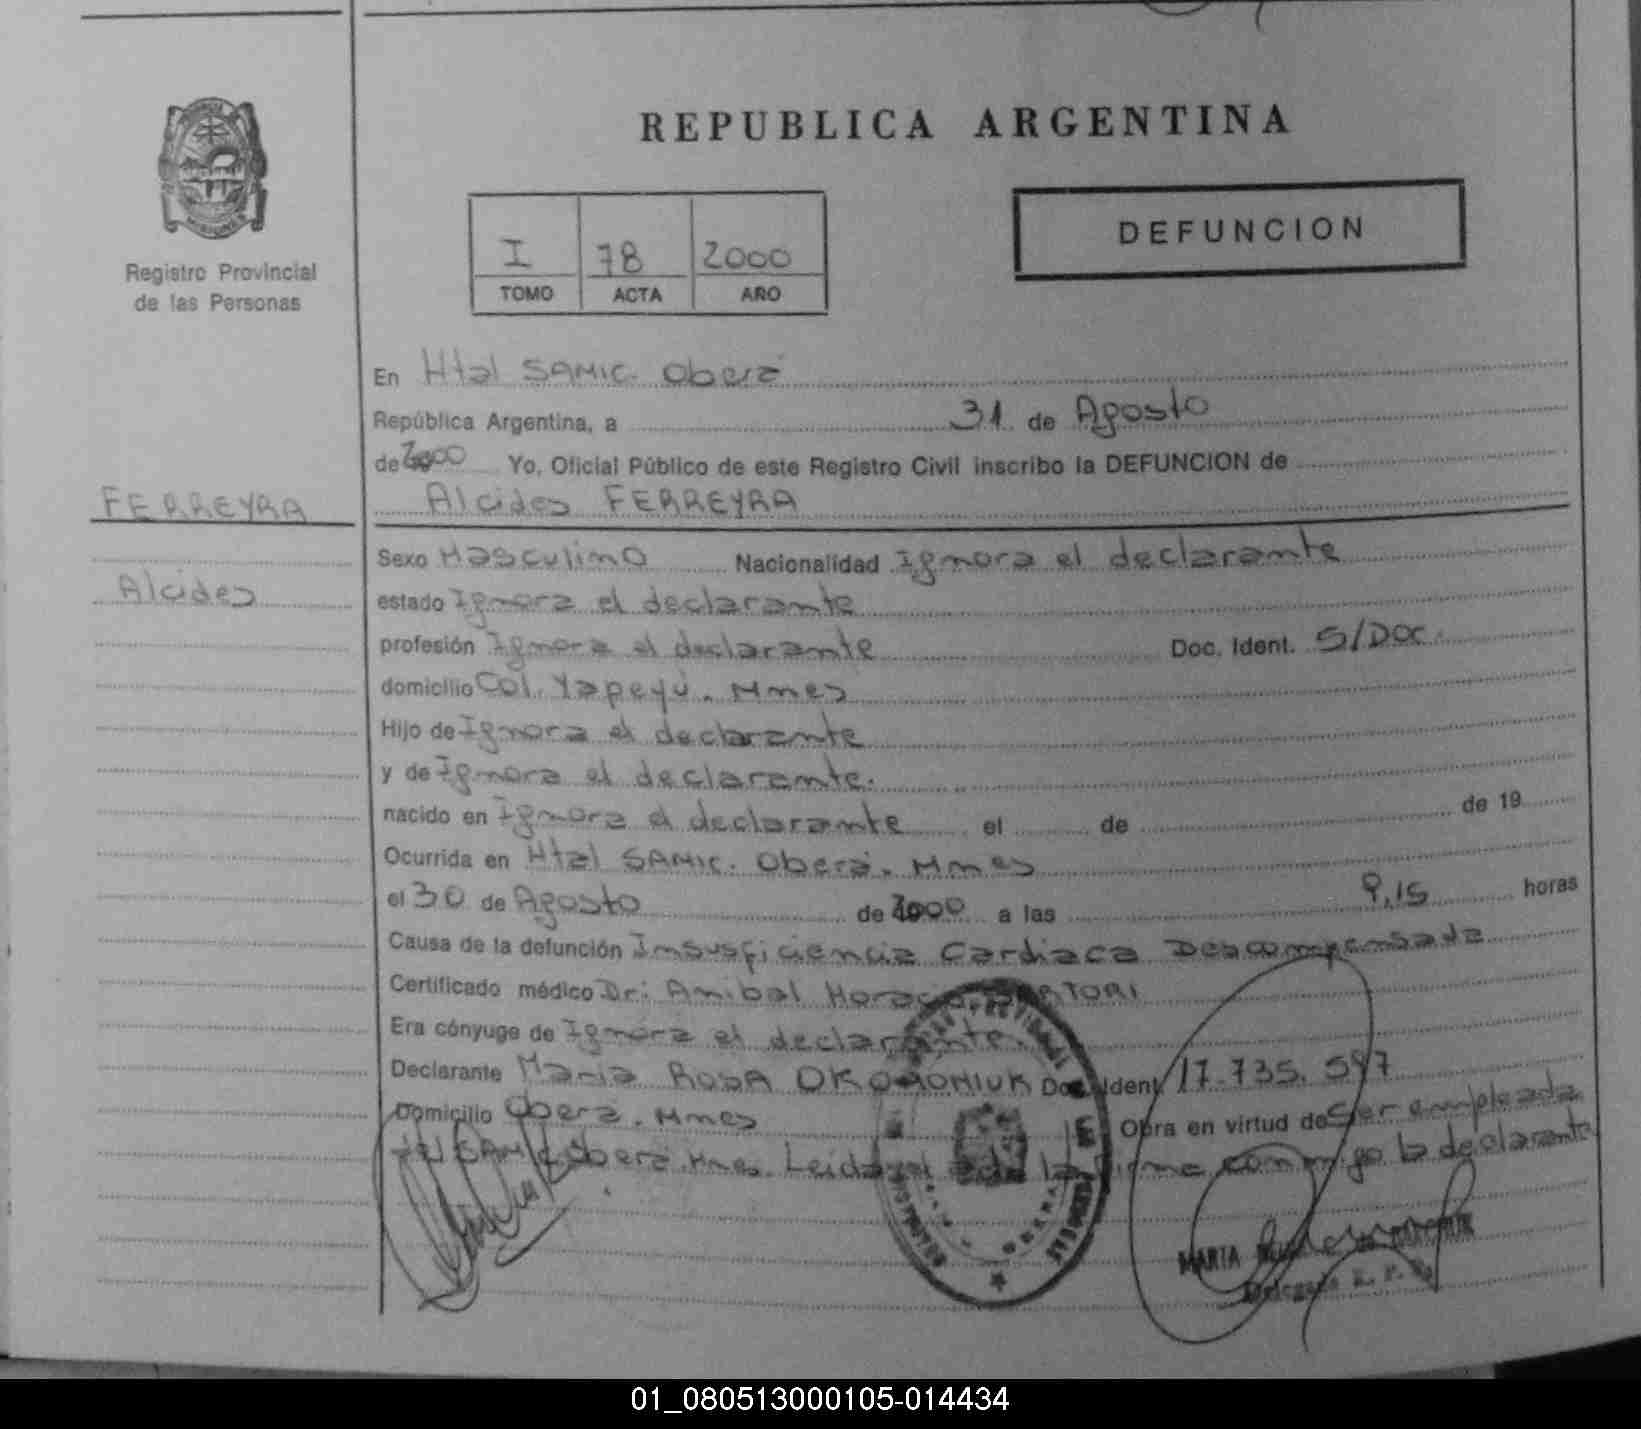 REPUBLICA ARGENTINA
Registro Provincial
de las Personas
I 78 2000
TOMO ACTA AÑO
DEFUNCION
En Htal SAMIC. Oberá
República Argentina, a 31 de Agosto
de 2000 Yo, Oficial Público de este Registro Civil inscribo la DEFUNCION de
FERREYRA
Alcides FERREYRA
Alcides
Sexo Masculino Nacionalidad Ignora el declarante
estado Ignora el declarante
profesión Ignora el declarante Doc. Ident. S/Doc.
domicilio Col. Yapeyú. Mnes
Hijo de Ignora el declarante
y de Ignora el declarante.
nacido en Ignora el declarante el de de 19
Ocurrida en Htal SAMIC. Oberá. Mnes
el 30 de Agosto de 2000 a las 9,15 horas
Causa de la defunción Insusficiencia Cardiaca Descompensada
Certificado médico Dr: Anibal Horacio SARTORI
Era cónyuge de Ignora el declarante.
Declarante María Rosa OKOMONIUK Doc. Ident. 17.735.597
Domicilio Oberá. Mnes Obra en virtud de Ser empleada
del SAMIC Oberá. Mnes. Leida el acta la firma conmigo la declarante
MARIA
Delegada R. P.
01_080513000105-014434